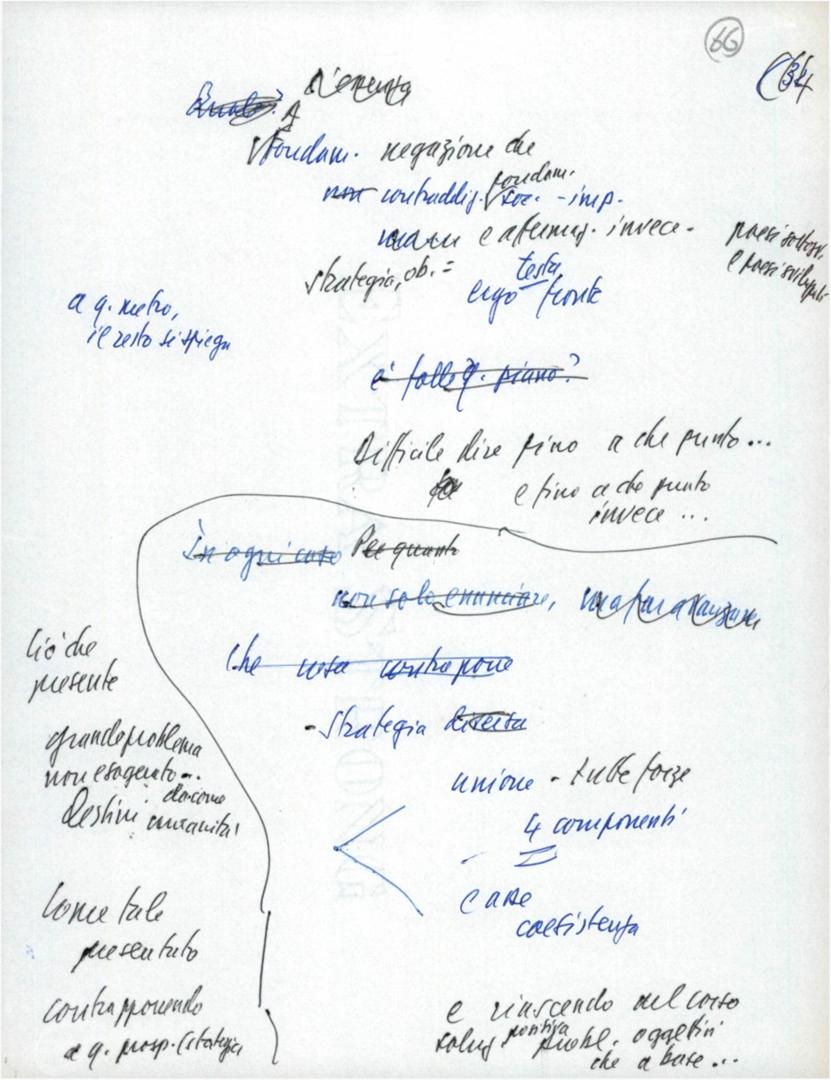 66
34
Quale?
L'essenza
Fondam. negazione che
non contraddiz. fondam. soc. - imp.
e affermaz. invece -
paesi sottosv.
e paesi sviluppati
strategia, ob. =
testa
ergo fronte
a q. metro,
il resto si spiega
è folle q. piano?
Difficile dire fino a che punto...
e fino a che punto
invece ...
In ogni caso Per quanto
non solo enunciare, ma far avanzare
Che cosa contrapone
- Strategia diversa
Ciò che
presente
grande problema
non esagerato...
Destini umanità
unione - tutte forze
4 componenti
e pace
coesistenza
Come tale
presentato
contrapponendo
a q. prosp. (strategia
e riuscendo nel corso
soluz. positiva probl. oggettivi
che a base ...